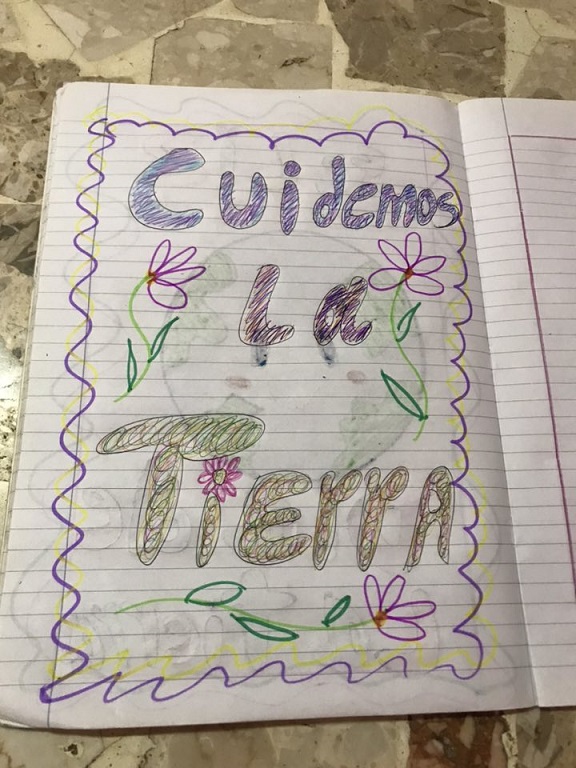 Cuidemos
La
Tierra